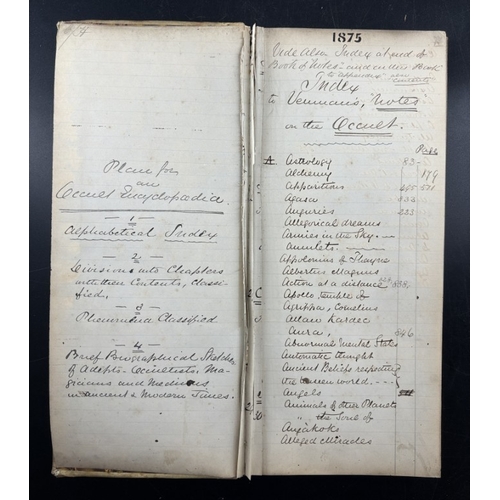 Plan for
an
Occult Encyclopædia.
1
Alphabetical Index
2
Divisions into Chapters
with their Contents, classi-
fied,
3
Phenomena Classified
4
Brief Biographical Sketches
of Adepts-Occultists, Ma-
gicians and Mediums
in ancient & Modern Times.
1875
Vide Also Index at end of
Book of Notes" and in the Book
Index
to Vennum's, "Notes
on the Occult.
Page
A Astrology 83
Alchemy 179
Apparitions 571
Agasa 333
Auguries 233
Allegorical dreams
Armies in the Sky
Amulets.
Appolonius of Thayne
Albertus Magnus
Action at a distance 338
Apollo, temple of
Agrippa, Cornelius
Allan Kardec
Aura, 546
Abnormal Mental States
Automatic thought
Ancient Beliefs respecting
the unseen world
Angels
Animals of other Planets
" the Soul of
Angakoks
Alleged Miracles